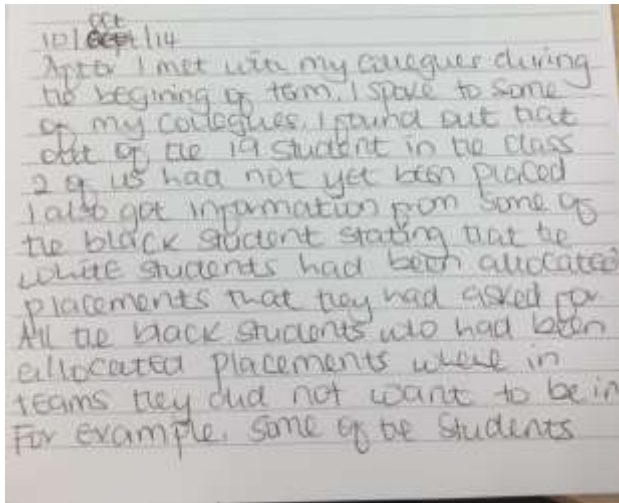 oct
10/Sept/14
After I met with my collegues during
the begining of term. I spoke to some
of my collegues. I found out that
out of the 19 student in the class
2 of us had not yet been placed
I also got information from some of
the black student stating that the
white students had been allocated
placements that they had asked for
All the black students who had been
allocated placements where in
teams they did not want to be in
For example, some of the students